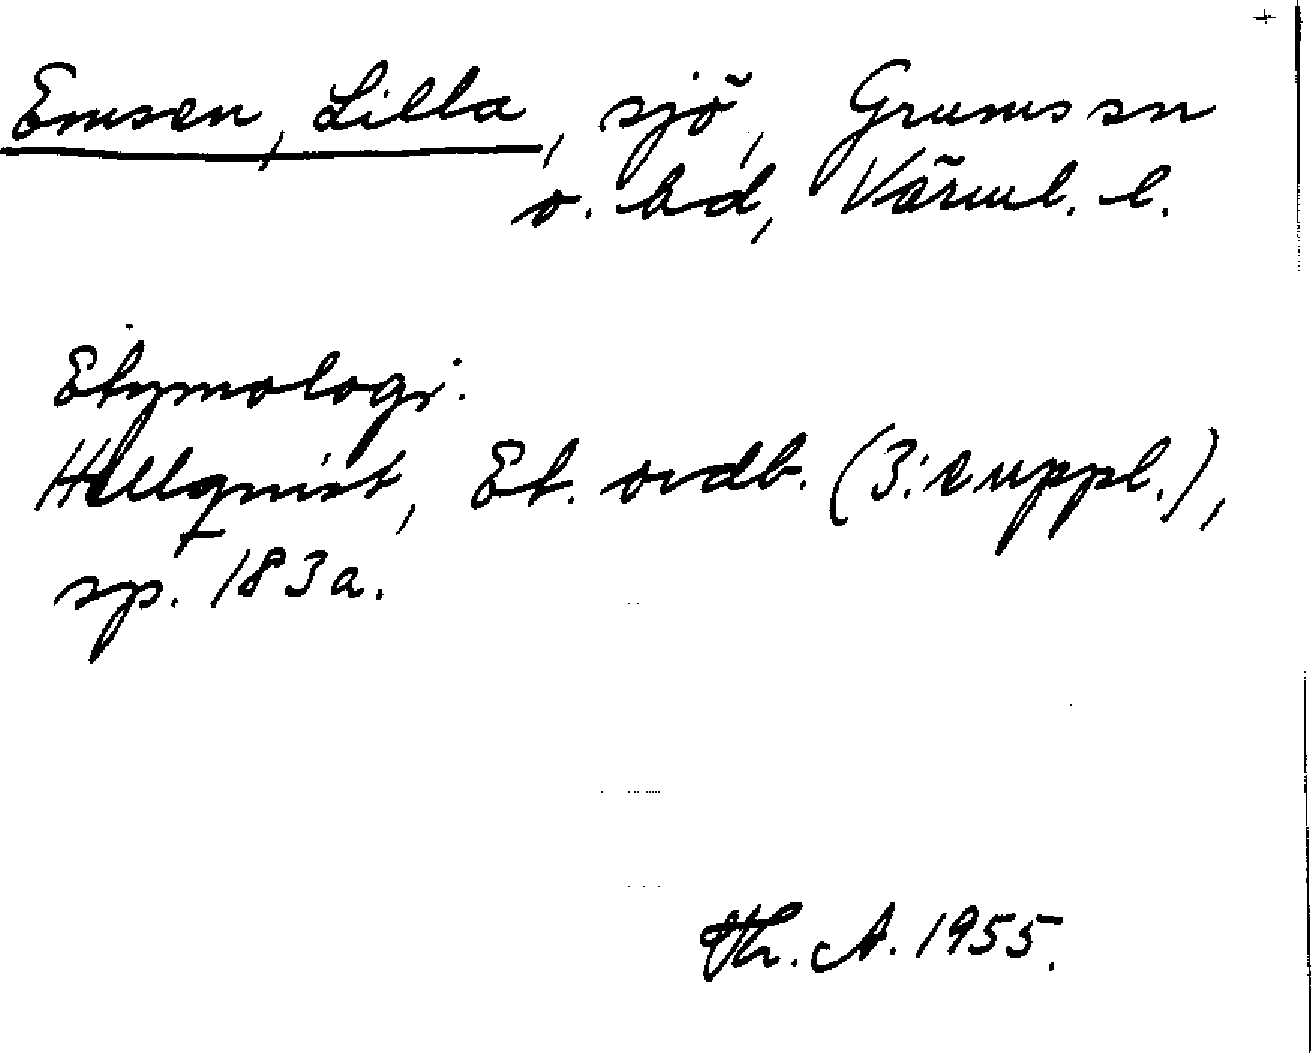 +
Emsen, Lilla, sjö, Grums sn
o. hd, Värml. l.
Etymologi.
Hellquist, Et. ordb. (3: suppl.),
sp. 183a.
Th. A. 1955.